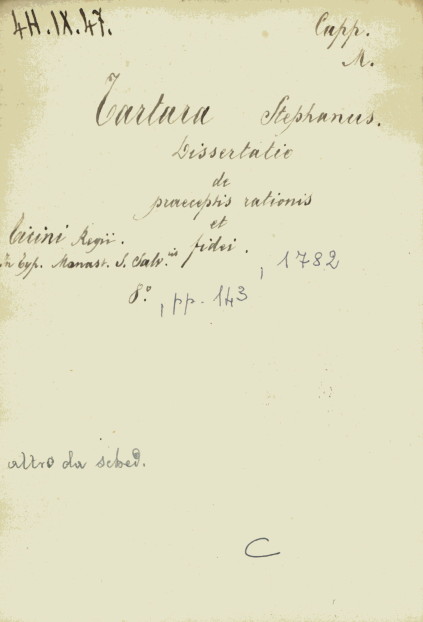 4H.IX.47.
Capp.
M.
Tartara Stephanus.
Dissertatio
de
praeceptis rationis
et
fidei.
Ticini Regii.
In Typ. Monast. S. Salv.ris
, 1782
8.°, pp. 143
altro da sched.
C